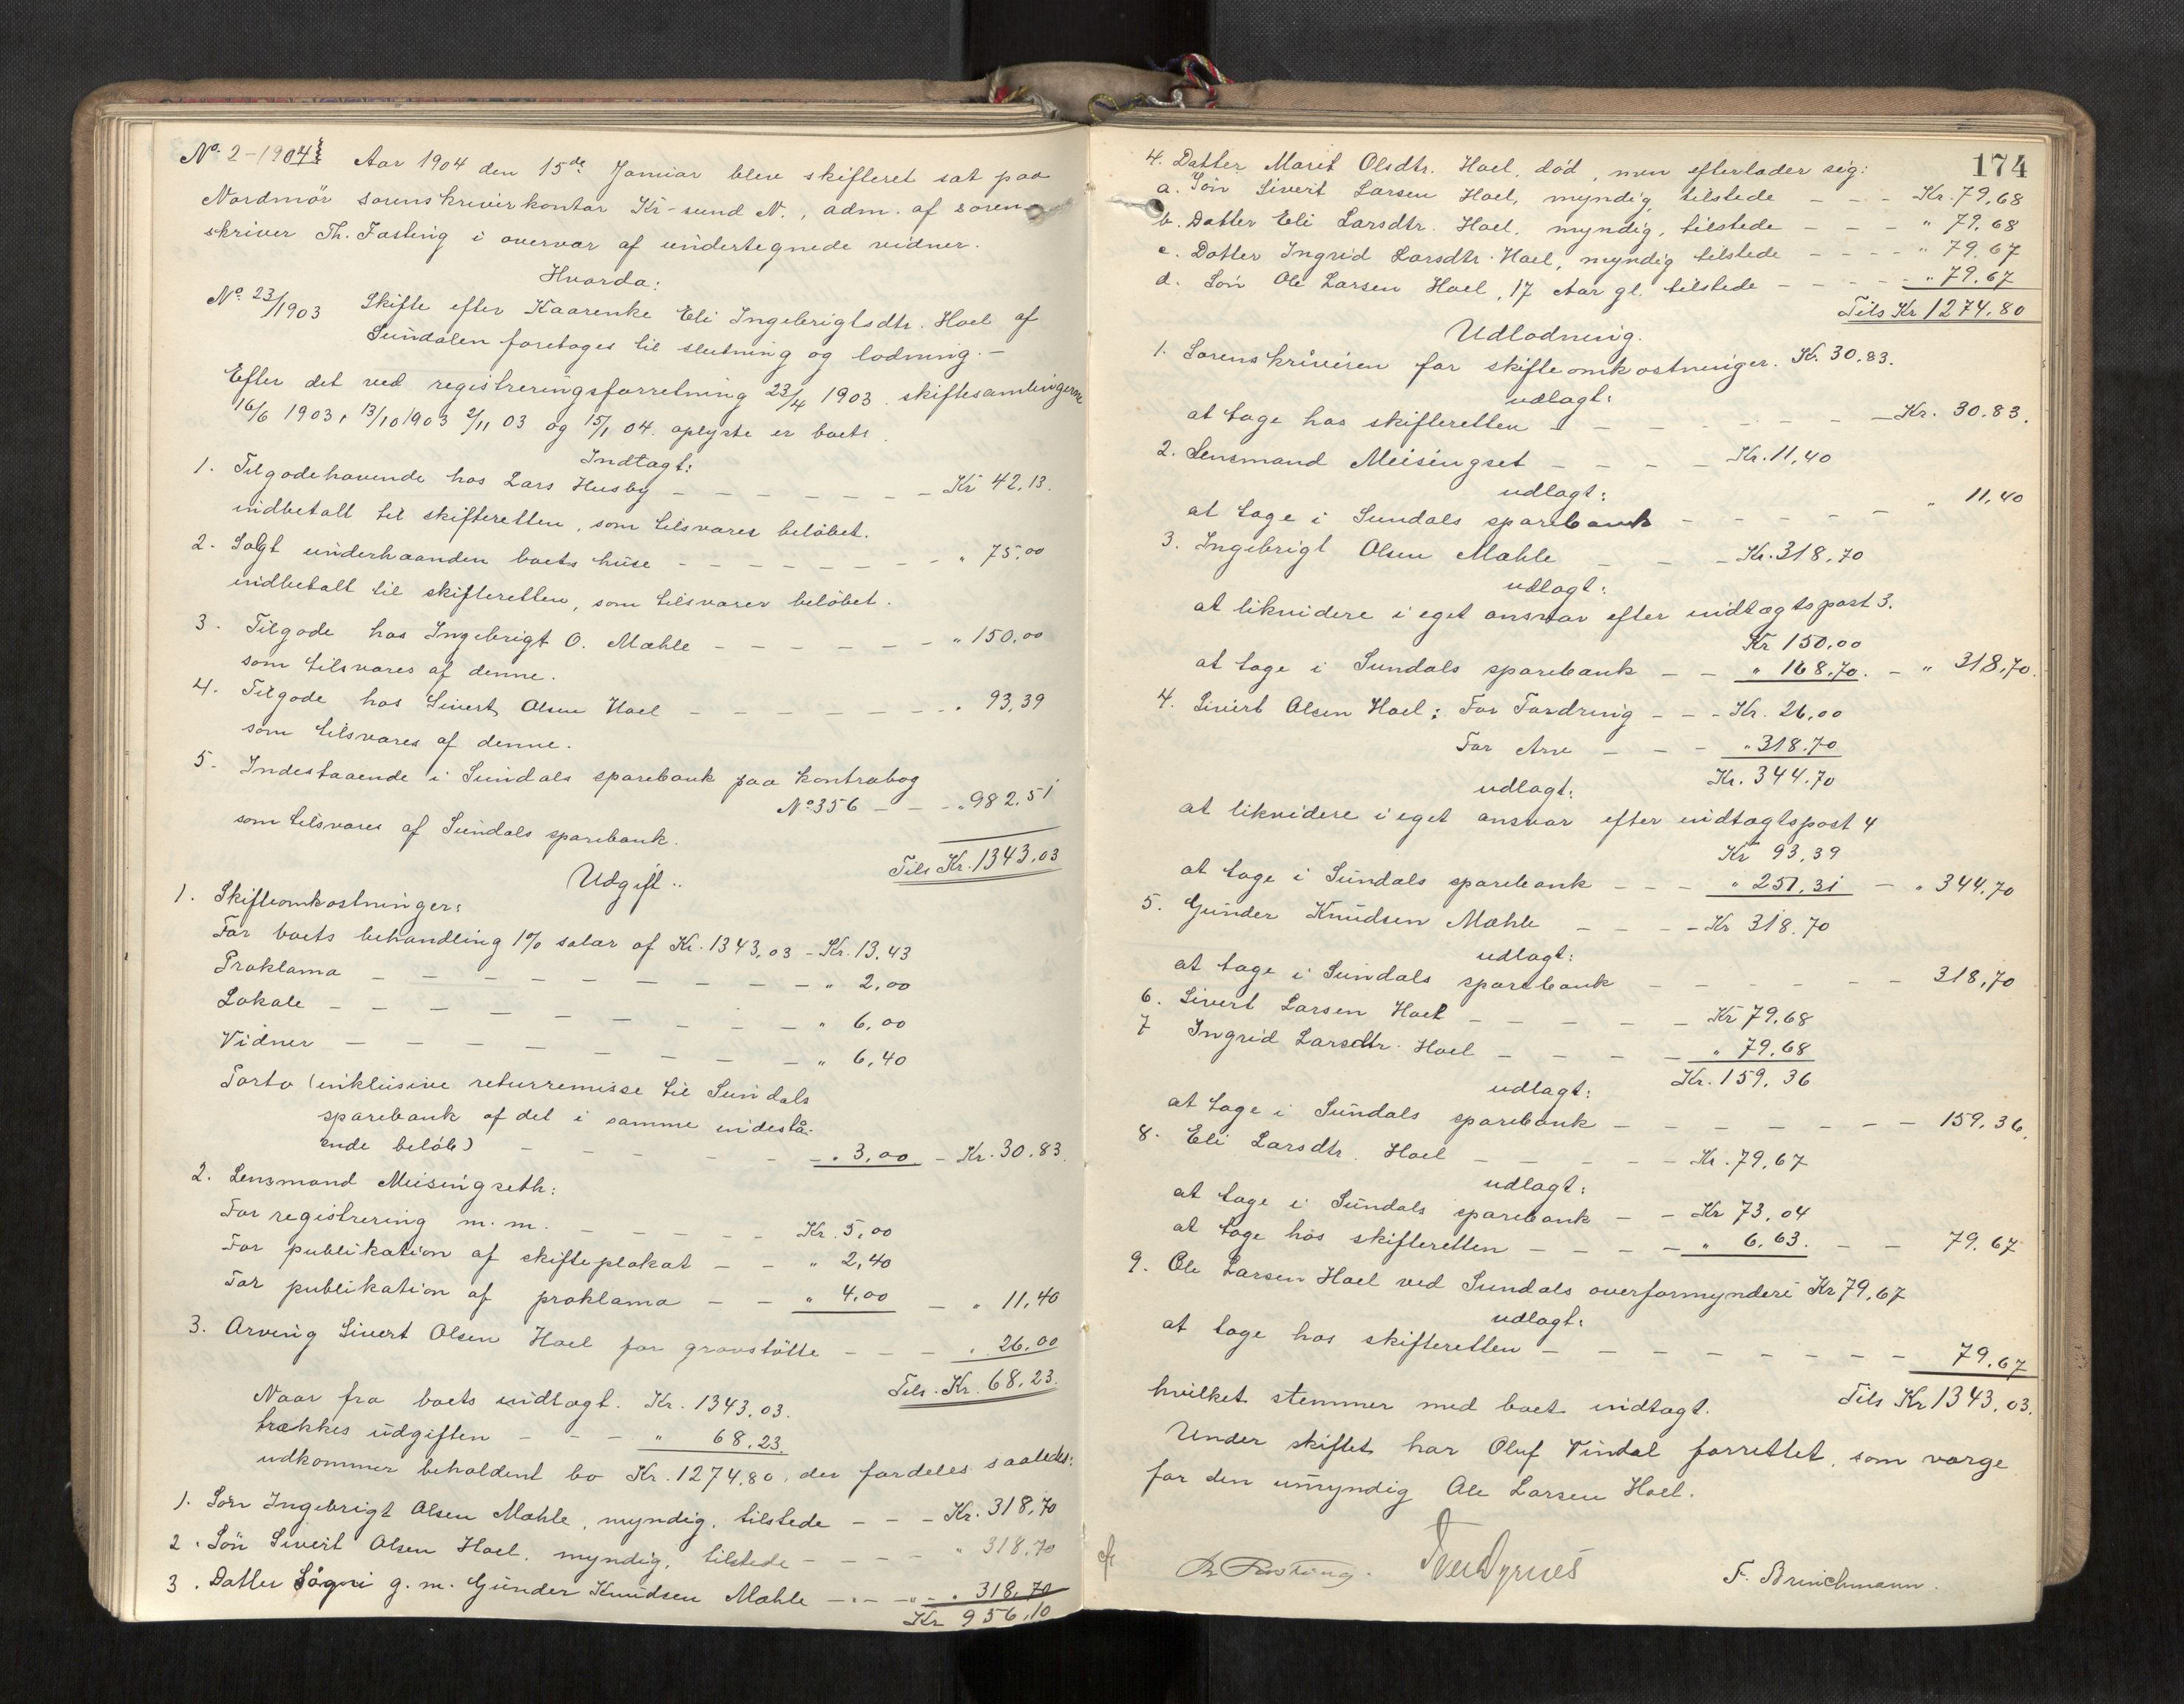 No. 2-1904 Aar 1904 den 15de Januar blev skifteret sat paa
Nordmör sorenskriverkontor Kr-sund N., adm. af soren-
skriver Th. Fasting i overvær af undertegnede vidner.
Hvorda:
No. 23/1903 Skifte efter Kaarenke Eli Ingebrigtsdtr. Hoel af
Sundalen foretoges til slutning og lodning. -
Efter det ved registreringsforretning 23/4 1903. skiftesamlingerne
16/6 1903, 13/10 1903 2/11 03 og 15/1 04. oplyste er boets
Indtægt:
1. Tilgodehavende hos Lars Husby - - - - - - - Kr 42,13.
indbetalt til skifteretten, som tilsvarer belöbet.
2. Solgt underhaanden boets huse - - - - - - - " 75,00
indbetalt til skifteretten, som tilsvarer belöbet.
3. Tilgode hos Ingebrigt O. Mæhle - - - - - - " 150,00
som tilsvares af denne.
4. Tilgode hos Sivert Olsen Hoel - - - - - - - " 93,39
som tilsvares af denne.
5. Indestaaende i Sundals sparebank paa kontrabog
No 356 - - - " 982,51
som tilsvares af Sundals sparebank.
Tils Kr. 1343,03
Udgift..
1. Skifteomkostninger:
For boets behandling 1% salær af Kr. 1343,03 - Kr. 13,43
Proklama - - - - - - - - " 2,00
Lokale - - - - - - - - " 6,00
Vidner - - - - - - - - " 6,40
Porto (inklusive returremisse til Sundals
sparebank af det i samme indestå-
ende belöb) - - - - - - " 3,00 - Kr. 30.83.
2. Lensmand Meisingseth:
For registrering m. m. - - - - - Kr. 5,00
For publikation af skifteplakat - - " 2,40
For publikation af proklama - - " 4,00 - " 11,40
3. Arving Sivert Olsen Hoel for gravstötte - - - " 26,00
Tils. Kr. 68,23.
Naar fra boets indtægt. Kr. 1343,03.
trækkes udgiften - - - " 68,23.
udkommer beholdent bo Kr. 1274,80, der fordeles saaledes:
1. Sön Ingebrigt Olsen Mæhle, myndig, tilstede - - - Kr. 318,70
2. Sön Sivert Olsen Hoel, myndig, tilstede - - - - " 318,70
3. Datter Sögni g. m. Gunder Knudsen Mæhle - - - " 318,70
Kr 956,10
174
4. Datter Marit Olsdtr. Hoel, död, men efterlader sig:
a. Sön Sivert Larsen Hoel, myndig, tilstede - - - Kr. 79,68
b. Datter Eli Larsdtr. Hoel, myndig, tilstede - - - " 79,68
c. Datter Ingrid Larsdtr. Hoel, myndig tilstede - - - - " 79,67
d. Sön Ole Larsen Hoel, 17 Aar gl. tilstede - - - - " 79,67
Tils Kr 1274,80
Udlodning.
1. Sorenskriveren for skifteomkostninger. Kr. 30.83.
udlagt:
at tage hos skifteretten - - - - - - - Kr. 30.83.
2. Lensmand Meisingset - - - - Kr. 11,40
udlagt:
at tage i Sundals sparebank - - - - - " 11,40
3. Ingebrigt Olsen Mæhle - - - Kr. 318,70
udlagt:
at likvidere i eget ansvar efter indtægtspost 3.
Kr 150,00
at tage i Sundals sparebank - - " 168,70. - " 318,70.
4. Sivert Olsen Hoel: For Fordring - - - Kr. 26,00
For Arv - - - " 318,70
Kr. 344,70
udlagt:
at likvidere i eget ansvar efter indtægtspost 4
Kr 93,39
at tage i Sundals sparebank - - - " 251,31 - " 344,70
5. Gunder Knudsen Mæhle - - - - Kr 318,70
udlagt:
at tage i Sundals sparebank - - - - - - 318,70
6. Sivert Larsen Hoel - - - - - Kr 79,68
7 Ingrid Larsdtr. Hoel - - - - " 79,68
Kr. 159,36
udlagt:
at tage i Sundals sparebank - - - - - - - 159,36.
8. Eli Larsdtr. Hoel - - - - - Kr. 79,67
udlagt:
at tage i Sundals sparebank - - Kr 73,04
at tage hos skifteretten - - - - " 6,63. - - 79,67
9. Ole Larsen Hoel ved Sundals overformynderi Kr 79,67
udlagt:
at tage hos skifteretten - - - - - - - - 79,67
hvilket stemmer med boets indtægt. Tils Kr 1343,03.
Under skiftet har Oluf Vindal forrettet som værge
for den umyndig Ole Larsen Hoel.
Th Fasting. F. Brinchmann.